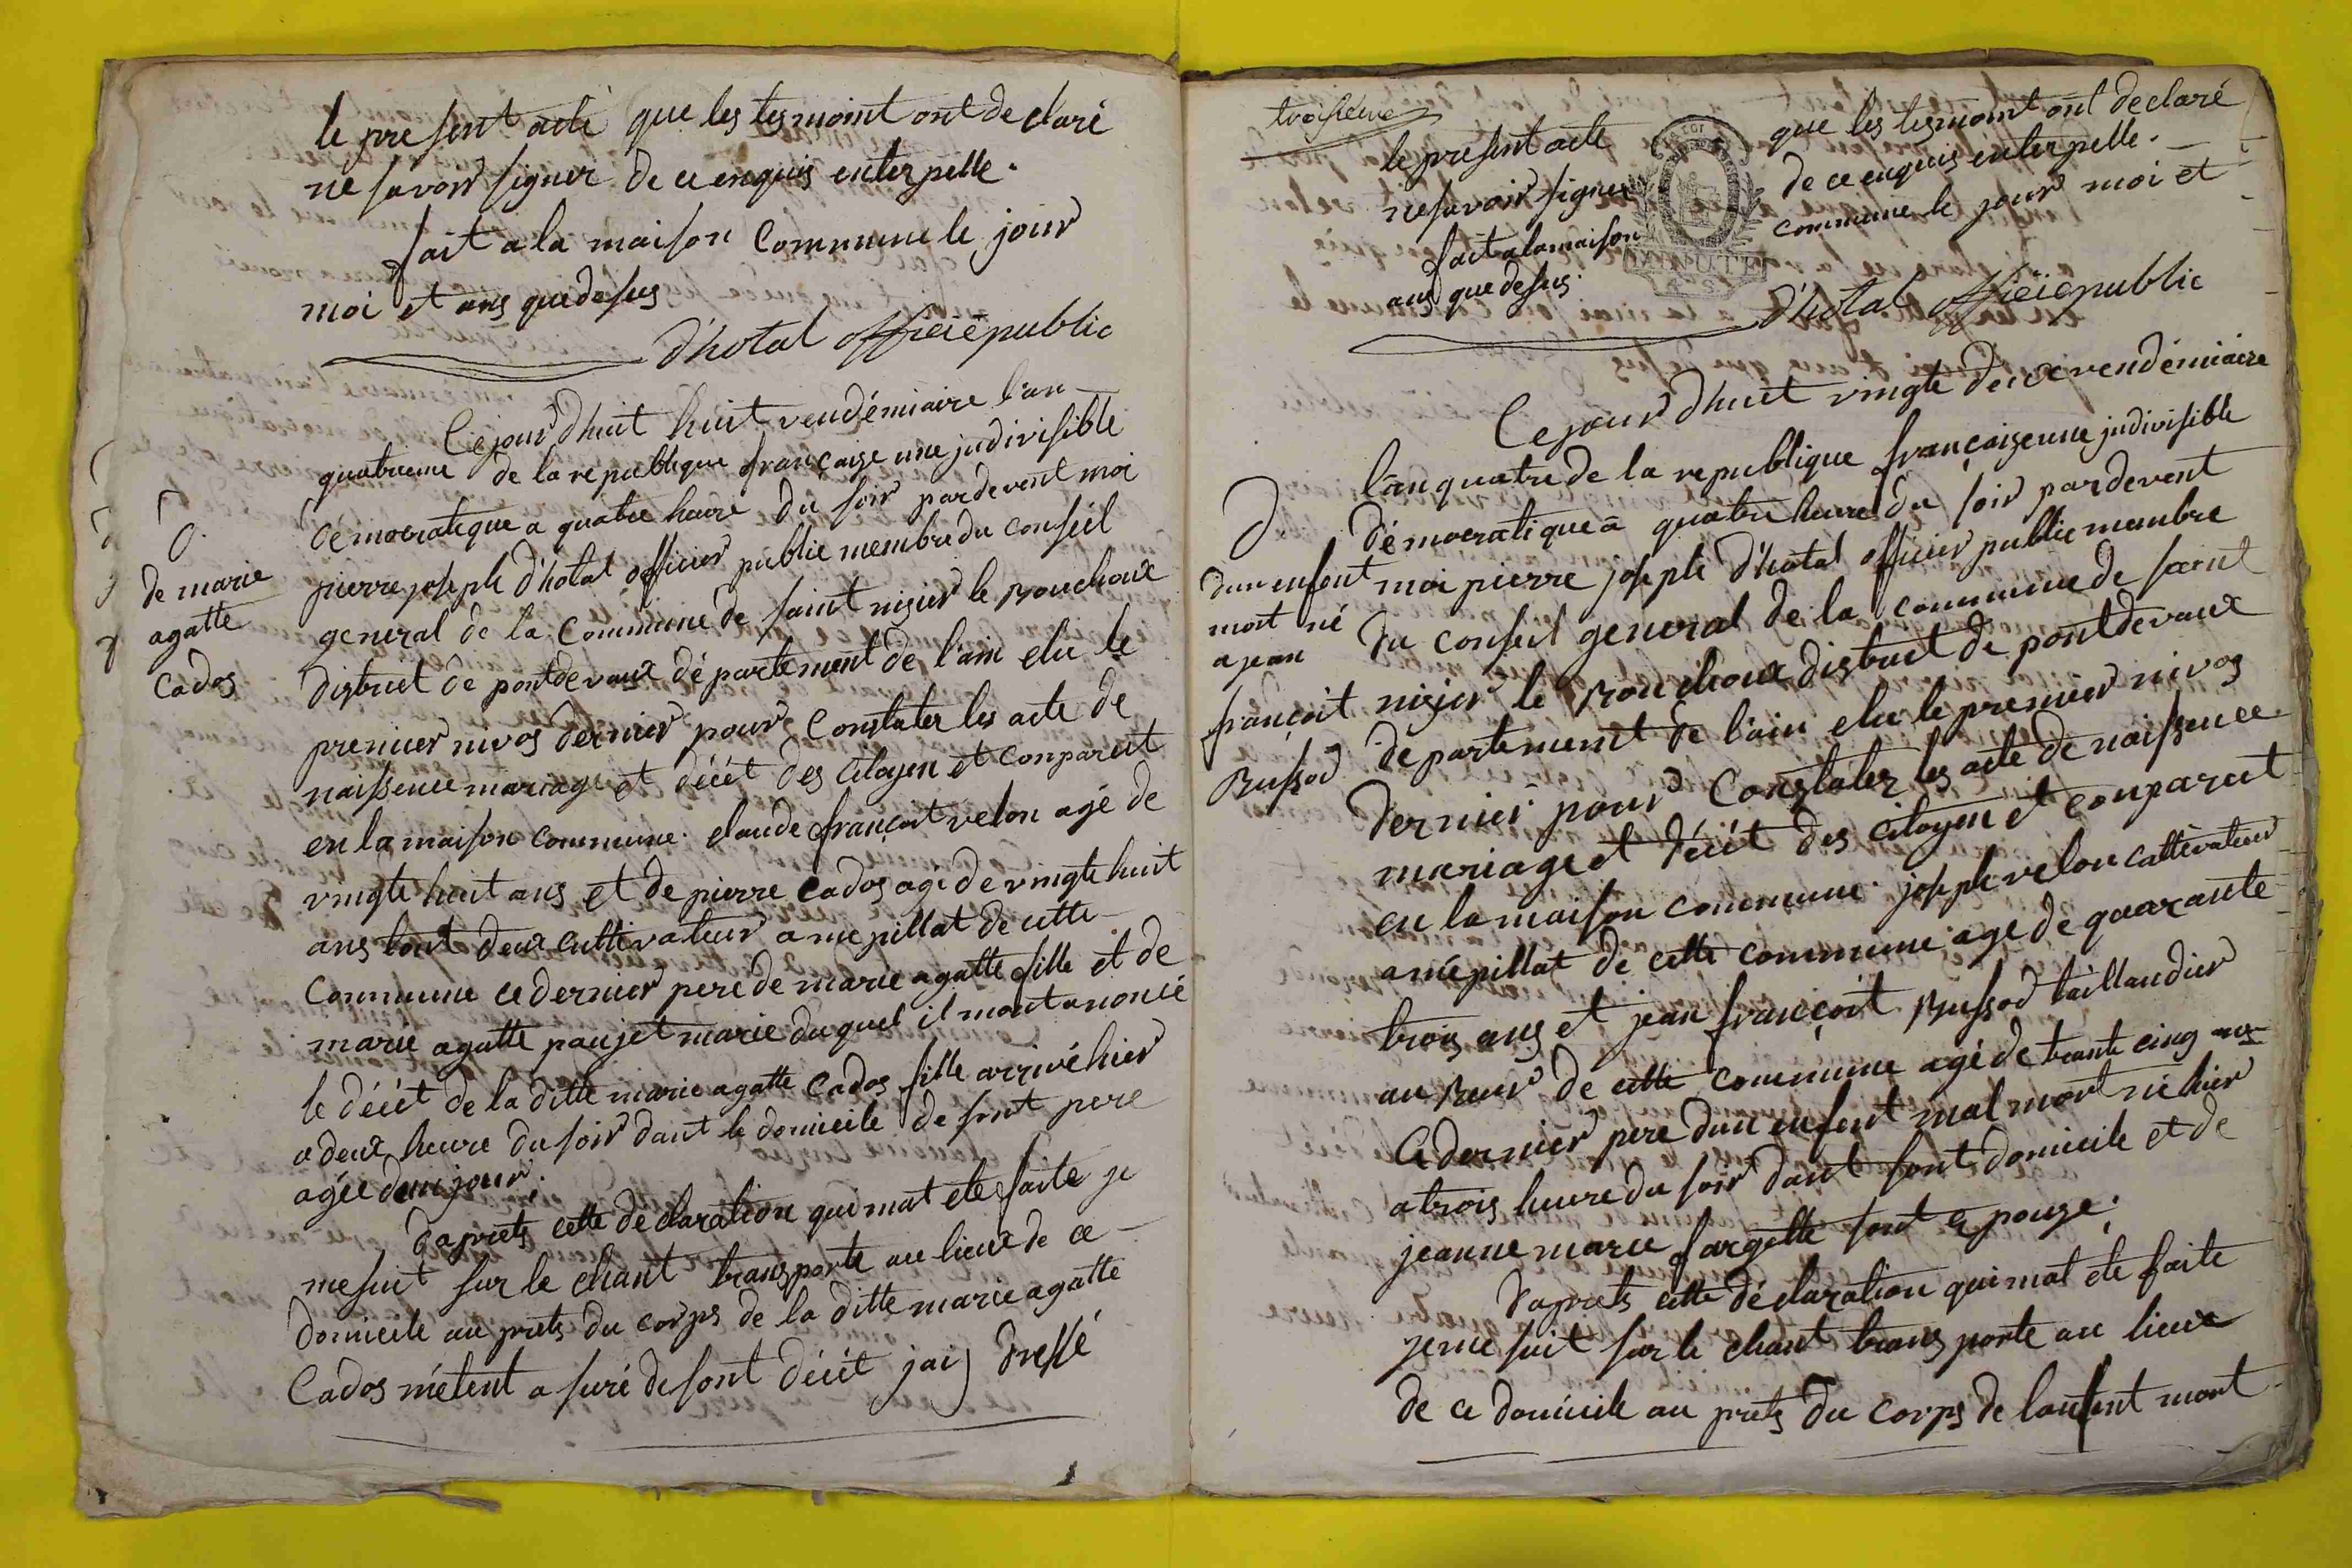 le present acte que les tesmoint ont declaré
ne savoir signer de ce enquis enterpelle.
fait a la maison commune le jour
moi et ans que desus
d'hotal officié public
Cejourd'huit huit vendémiaire l'an
quatrieme de la republique françaize une jndivisible
démocratique a quatre heure du soir pardevent moi
pierre joseph d'hotal officier public membre du conseil
general de la commune de saint nizier le bouchoux
distruct de pontdevaux département de l'ain elu le
premier nivos dernier pour constater les acte de
naissence mariage et décét des citoyen et conparut
en la maison commune. claude françoit velon agé de
vingte huit ans et de pierre cados agé de vingte huit
ans tout deux cultivateur a mepillat de cette
commune ce dernier pere de marie agatte fille et de
marie agatte paujet marie duquel il mont anoncé
le décét de la ditte marie agatte cados fille arrivé hier
a deux heure du soir dant le domicile de sont pere
agée dun jour.
d'aprets cette declaration qui mat ete faite je
me suit sur le chant transporte au lieux de ce
domicile au prets du corps de la ditte marie agatte
Cados m'étent asuré de sont décét jai dressé
D.
de marie
agatte
Cados
troisieme
le present acte que les tesmoint ont declaré
ne savoir signer de ce enquis enterpelle.
fait a la maison commune le jour moi et
ans que desus.
MINUTE
d'hotal officié public
Cejourd'huit vingte deux vendémiaire
l'an quatre de la republique françaize une jndivisible
démocratique a quatre heure du soir pardevent
moi pierre joseph d'hotal officier public membre
du conseil general de la commune de saint
nizier le bouchoux distruct de pontdevaux
departement de l'ain elu le premier nivos
dernier pour constater les acte de naissence
mariage et décét des citoyen et conparut
en la maison commune. joseph velon cultivateur
a mepillat de cette commune age de quarante
trois ans et jean françoit Bussod taillandier
au Bour de cette commune agé de trante cinq ans
Ce dernier pere dun enfent mal mort né hier
a trois heure du soir dant sont domicile et de
jeanne marie fargette sont epouze.
d'aprets cette déclaration qui mat ete faite
je me suit sur le chant trans porte au lieux
de ce domicile au prets du corps de lanfent mort
D
dun enfent
mort né
a jean
françoit
Bussod